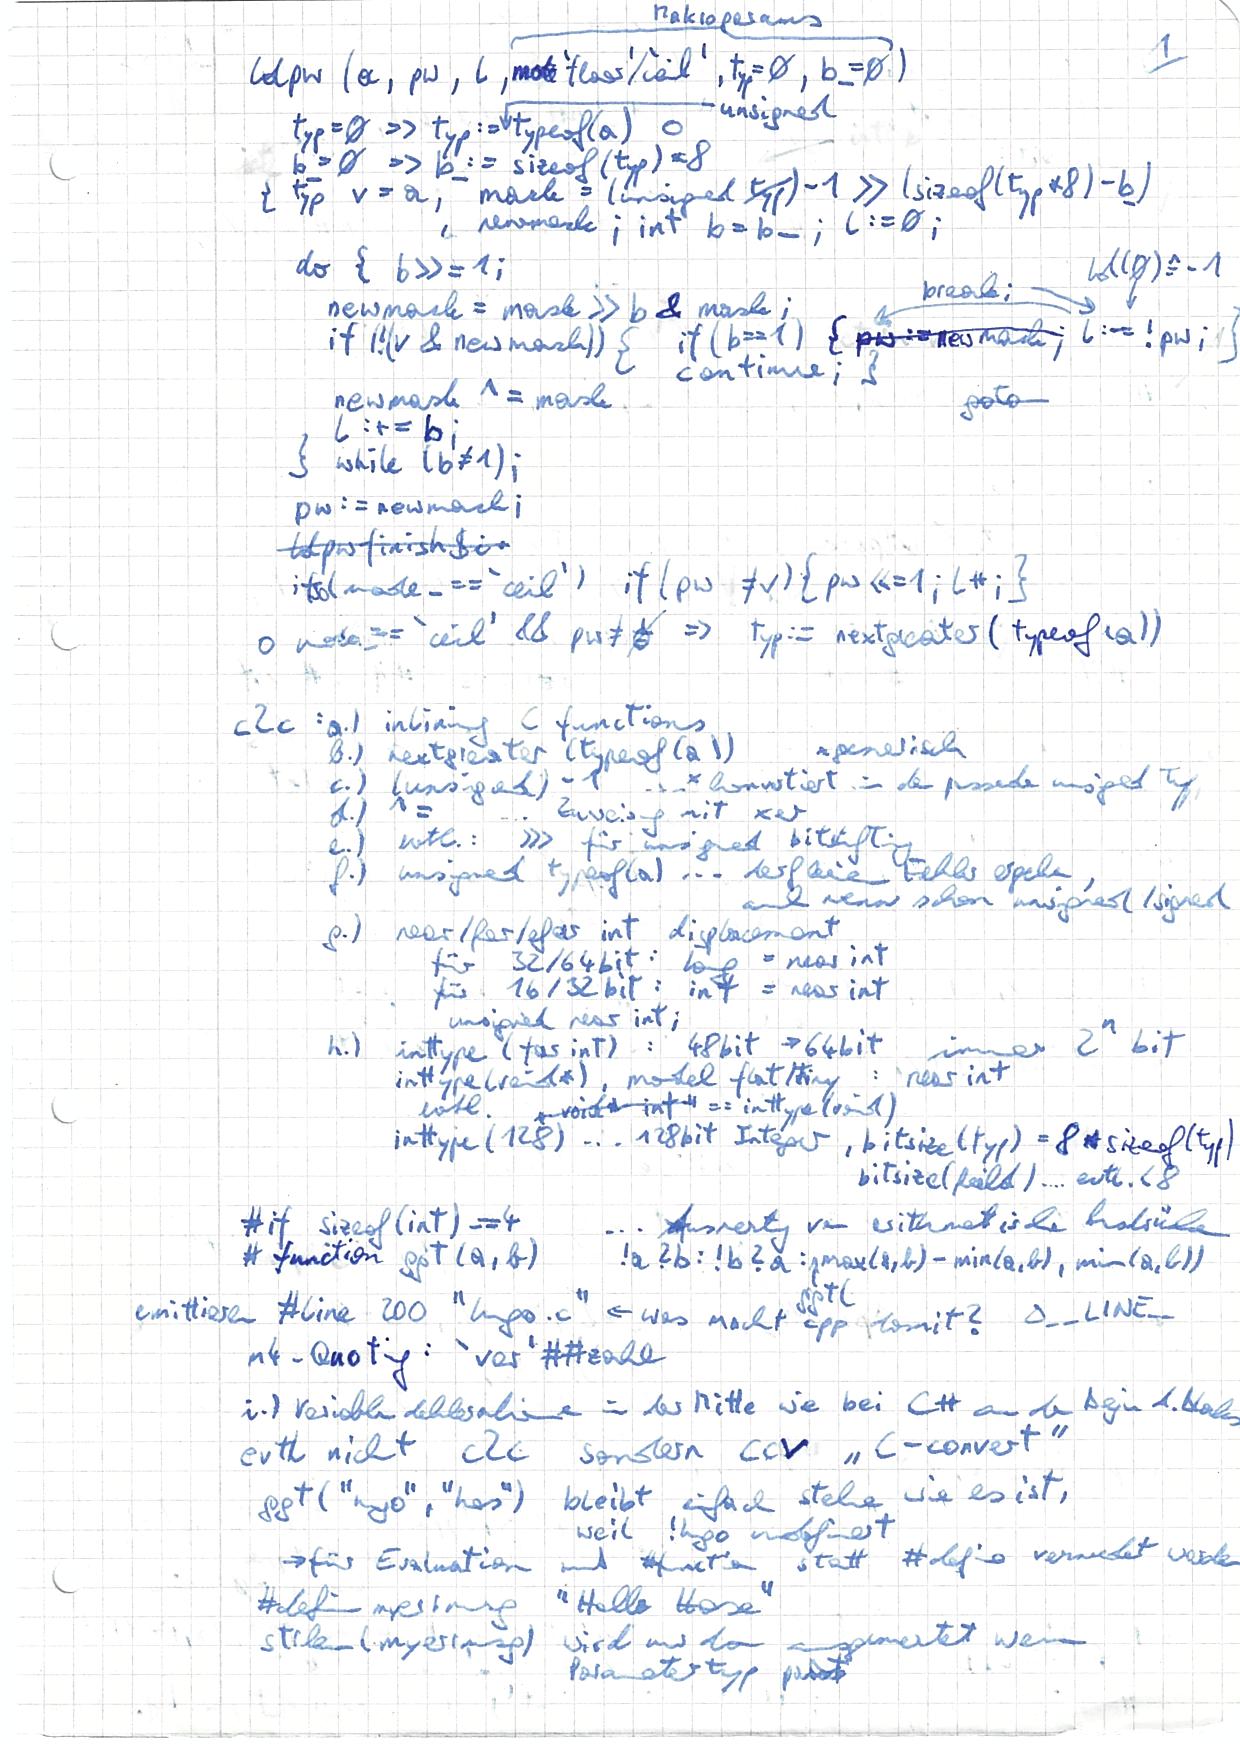 Makroparams
1
ldpw (a, pw, l, mode 'floor'/'ceil', typ=0, b_=0)
unsigned
typ=0 => typ := typeof(a) o
b_=0 => b_ := sizeof(typ)*8
{ typ v = a, mask = (unsigned typ)-1 >> (sizeof(typ*8)-b)
, newmask; int b=b_; l:=0;
do { b>>=1;
ld(0)≙-1
break;
newmask = mask >> b & mask;
if (!(v & newmask)) { if (b==1) { pw := newmask; l:=!pw; }
continue; }
newmask ^= mask
goto
l :+= b;
} while (b≠1);
pw := newmask;
ldpwfinish$i:
if (mode_ == `ceil') if (pw ≠v) {pw <<=1; l++;}
o mode_ == `ceil' && pw≠ => typ := nextgreater(typeof(a))
c2c : a.) inlining C functions
b.) nextgreater (typeof(a)) *generisch
c.) (unsigned) -1 ...* konvertiert in den passenden unsigned Typ
d.) ^= ... Zuweisung mit xor
e.) evtl.: >>> für unsigned bitshifting
f.) unsigned typeof(a) ... darf keinen Fehler ergeben,
auch wenn schon unsigned/signed
g.) near/far/ int displacement
für 32/64bit: long = near int
für 16/32bit: int = near int
unsigned near int;
h.) inttype (far int) : 48bit → 64bit immer 2^n bit
inttype(void*), model flat/tiny : near int
evtl. "void* int" == inttype(void)
inttype(128) ... 128bit Integer, bitsize(typ) = 8*sizeof(typ)
bitsize(field) .... evtl. <8
#if sizeof(int)==4 ... Auswertung von arithmetischen Ausdrücken
# function ggt(a,b) !a?b:!b?a:ggt(max(a,b)-min(a,b), min(a,b))
emittieren #line 200 "hugo.c" ← was macht cpp damit? __LINE__
m4-Quoting: `var'##zahl
i.) Variablendeklaration in der Mitte wie bei C++ an den Beginn d. Blocks
evtl nicht c2c sondern ccv „C-convert"
ggt("hugo","has") bleibt einfach stehen wie es ist,
weil !hugo undefiniert
→für Evaluation muß #function statt #define verwendet werden
#define myerrmsg "Hallo Hase"
strlen(myerrmsg) wird nur dann ausgewertet wenn
Parametertyp passt